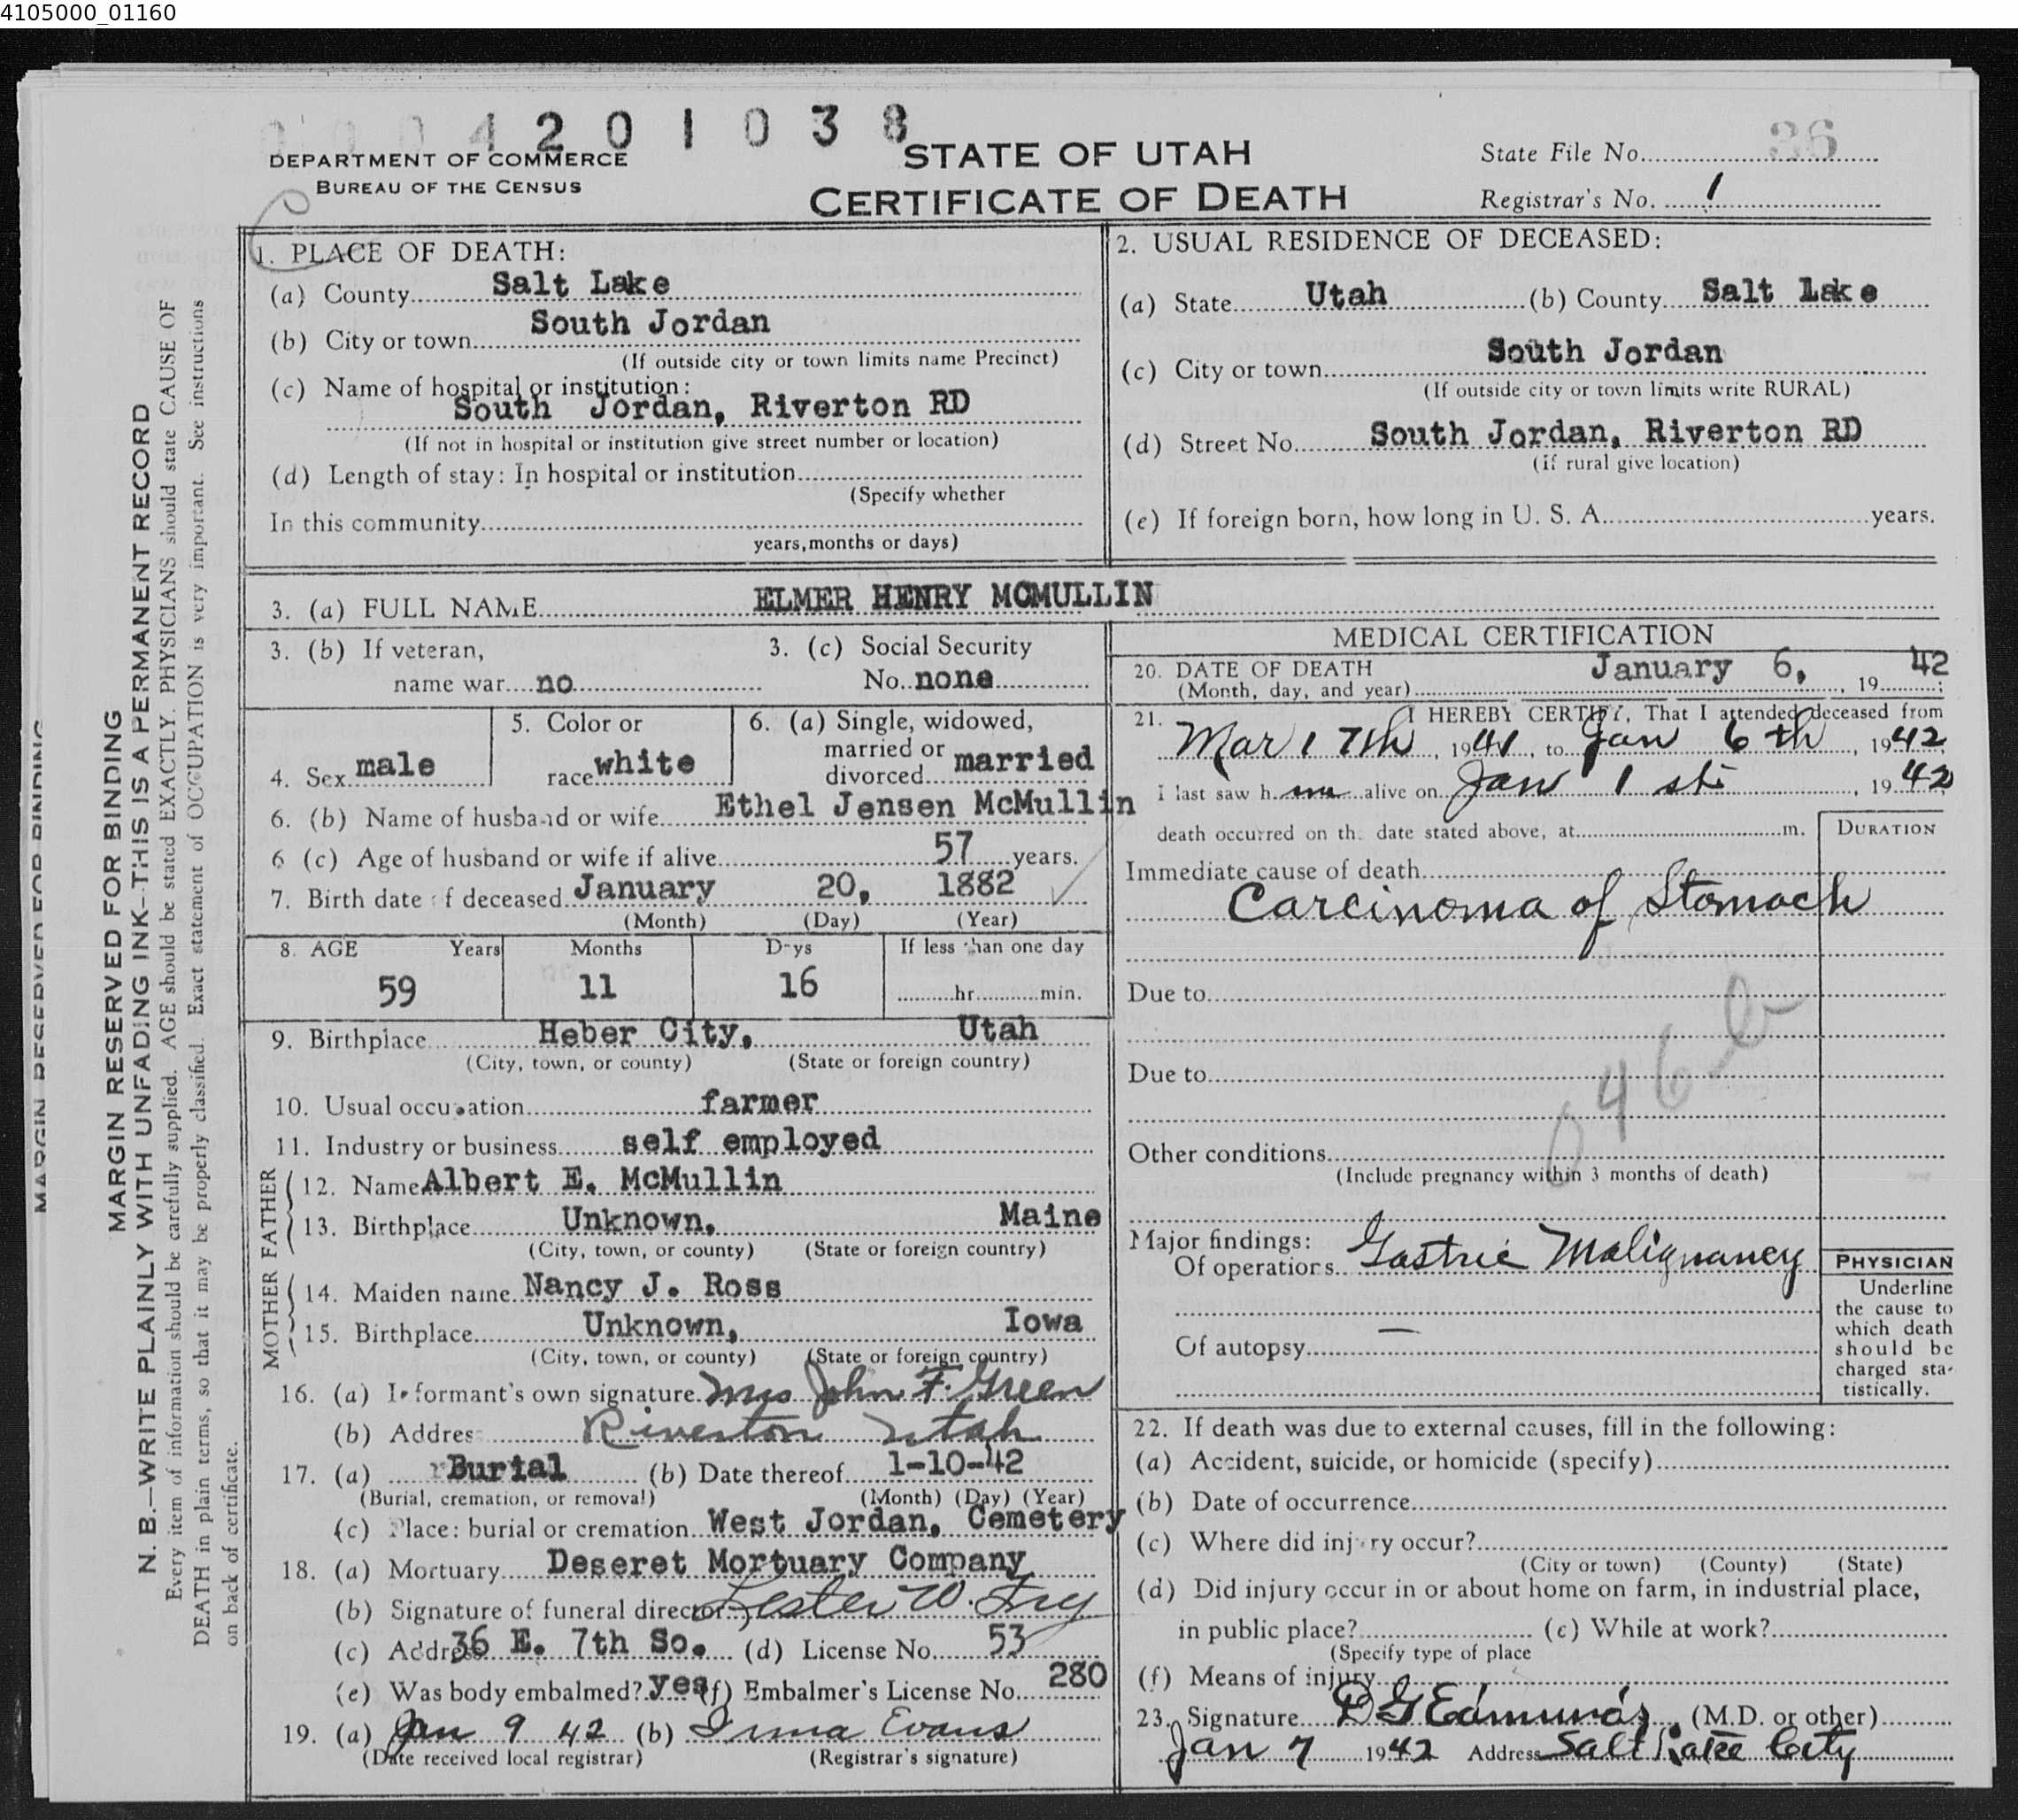 4105000_01160
0004201038
DEPARTMENT OF COMMERCE
BUREAU OF THE CENSUS
STATE OF UTAH
CERTIFICATE OF DEATH
State File No. 36
Registrar's No. 1
MARGIN RESERVED FOR BINDING
MARGIN RESERVED FOR BINDING
N. B.—WRITE PLAINLY WITH UNFADING INK—THIS IS A PERMANENT RECORD
Every item of information should be carefully supplied. AGE should be stated EXACTLY. PHYSICIANS should state CAUSE OF
DEATH in plain terms, so that it may be properly classified. Exact statement of OCCUPATION is very important. See instructions
on back of certificate.
1. PLACE OF DEATH:
(a) County Salt Lake
(b) City or town South Jordan
(If outside city or town limits name Precinct)
(c) Name of hospital or institution:
South Jordan, Riverton RD
(If not in hospital or institution give street number or location)
(d) Length of stay: In hospital or institution
(Specify whether
In this community
years, months or days)
2. USUAL RESIDENCE OF DECEASED:
(a) State Utah (b) County Salt Lake
(c) City or town South Jordan
(If outside city or town limits write RURAL)
(d) Street No. South Jordan, Riverton RD
(if rural give location)
(e) If foreign born, how long in U. S. A. years.
3. (a) FULL NAME ELMER HENRY MCMULLIN
3. (b) If veteran,
name war no
3. (c) Social Security
No. none
4. Sex male
5. Color or
race white
6. (a) Single, widowed,
married or
divorced married
6. (b) Name of husband or wife Ethel Jensen McMullin
6 (c) Age of husband or wife if alive 57 years.
7. Birth date of deceased January 20, 1882
(Month) (Day) (Year)
8. AGE Years Months Days If less than one day
59 11 16 hr. min.
9. Birthplace Heber City, Utah
(City, town, or county) (State or foreign country)
10. Usual occupation farmer
11. Industry or business self employed
FATHER
12. Name Albert E. McMullin
13. Birthplace Unknown, Maine
(City, town, or county) (State or foreign country)
MOTHER
14. Maiden name Nancy J. Ross
15. Birthplace Unknown, Iowa
(City, town, or county) (State or foreign country)
16. (a) Informant's own signature Mrs John F. Green
(b) Address Riverton Utah
17. (a) Burial (b) Date thereof 1-10-42
(Burial, cremation, or removal) (Month) (Day) (Year)
(c) Place: burial or cremation West Jordan, Cemetery
18. (a) Mortuary Deseret Mortuary Company
(b) Signature of funeral director Lester W. Fry
(c) Address 36 E. 7th So. (d) License No. 53
(e) Was body embalmed? yes (f) Embalmer's License No. 280
19. (a) Jan 9 42 (b) Irma Evans
(Date received local registrar) (Registrar's signature)
MEDICAL CERTIFICATION
20. DATE OF DEATH January 6, 42
(Month, day, and year) , 19 ;
21. I HEREBY CERTIFY, That I attended deceased from
Mar 17th, 1941, to Jan 6th, 1942
I last saw him alive on Jan 1st, 1942
death occurred on the date stated above, at m.
DURATION
Immediate cause of death
Carcinoma of Stomach
Due to
Due to
046b
Other conditions
(Include pregnancy within 3 months of death)
Major findings:
Of operations Gastric Malignancy
Of autopsy —
PHYSICIAN
Underline
the cause to
which death
should be
charged sta-
tistically.
22. If death was due to external causes, fill in the following:
(a) Accident, suicide, or homicide (specify)
(b) Date of occurrence
(c) Where did injury occur?
(City or town) (County) (State)
(d) Did injury occur in or about home on farm, in industrial place,
in public place? (e) While at work?
(Specify type of place
(f) Means of injury
23. Signature D G Edmunds, (M.D. or other)
Jan 7 1942 Address Salt Lake City